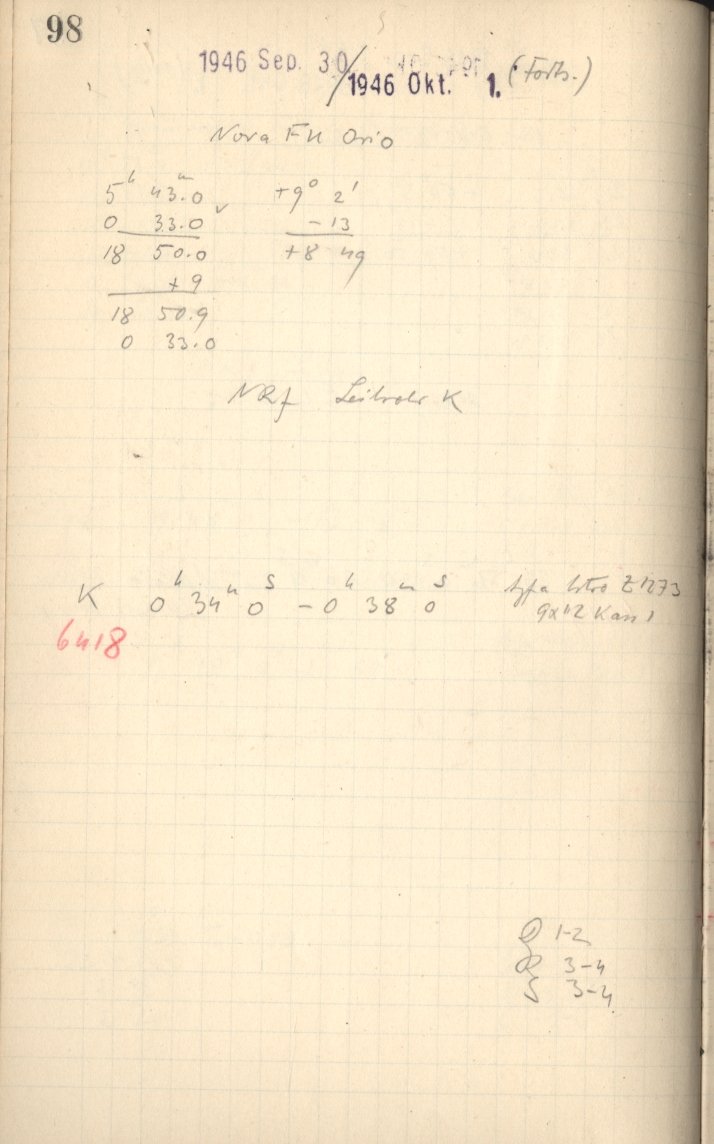 98
1946 Sep. 30/1946 Okt. 1. (Forts.)
Nova FU Orio
5h 43.0m v +9° 2'
0 33.0 -13
18 50.0 +8 49
+9
18 50.9
0 33.0
NRf Leitrohr K
K 0h 34m 0s – 0h 38m 0s Agfa Astro Z 1273
6418 9x12 Kass 1
Q 1-2
R 3-4
S 3-4